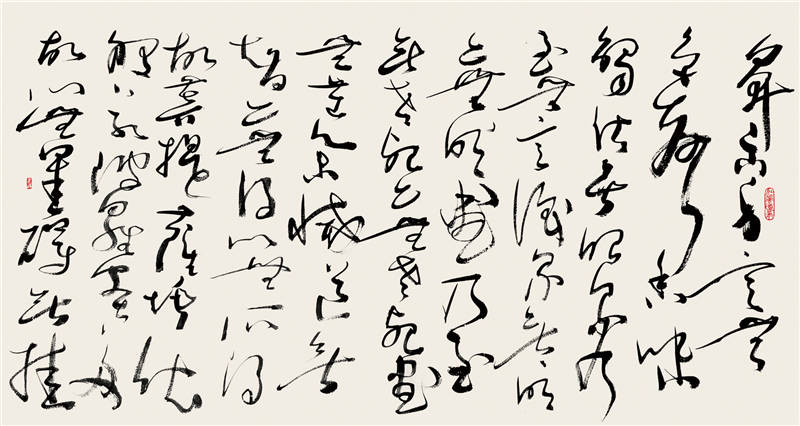 鼻舌身意無
色聲香味
觸法無眼界乃
至無意識界無無明
亦無無明盡乃至
無老死亦無老死盡
無苦集滅道無
智亦無得以無所得
故菩提薩埵依
般若波羅蜜多
故心無罣礙無罣